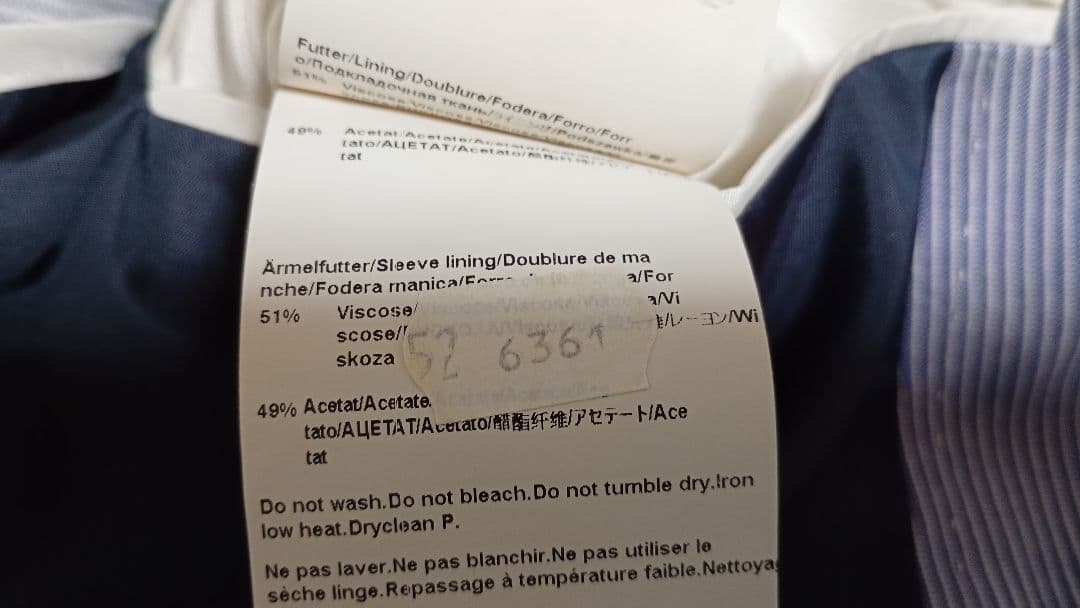 Futter/Lining/Doublure/Fodera/Forro/Forr
o/Подкладочная ткань/
51% Viscose/
49% Acetat/Acetate/
tato/АЦЕТАТ/Acetato/
tat
Ärmelfutter/Sleeve lining/Doublure de ma
nche/Fodera manica/Forro a/For
51% Viscose/ a/Vi
scose/ 維/レーヨン/Wi
skoza
52 6361
49% Acetat/Acetate.
tato/АЦЕТАТ/Acetato/醋酯纤维/アセテート/Ace
tat
Do not wash.Do not bleach.Do not tumble dry.Iron
low heat.Dryclean P.
Ne pas laver.Ne pas blanchir.Ne pas utiliser le
sèche linge.Repassage à température faible.Nettoya